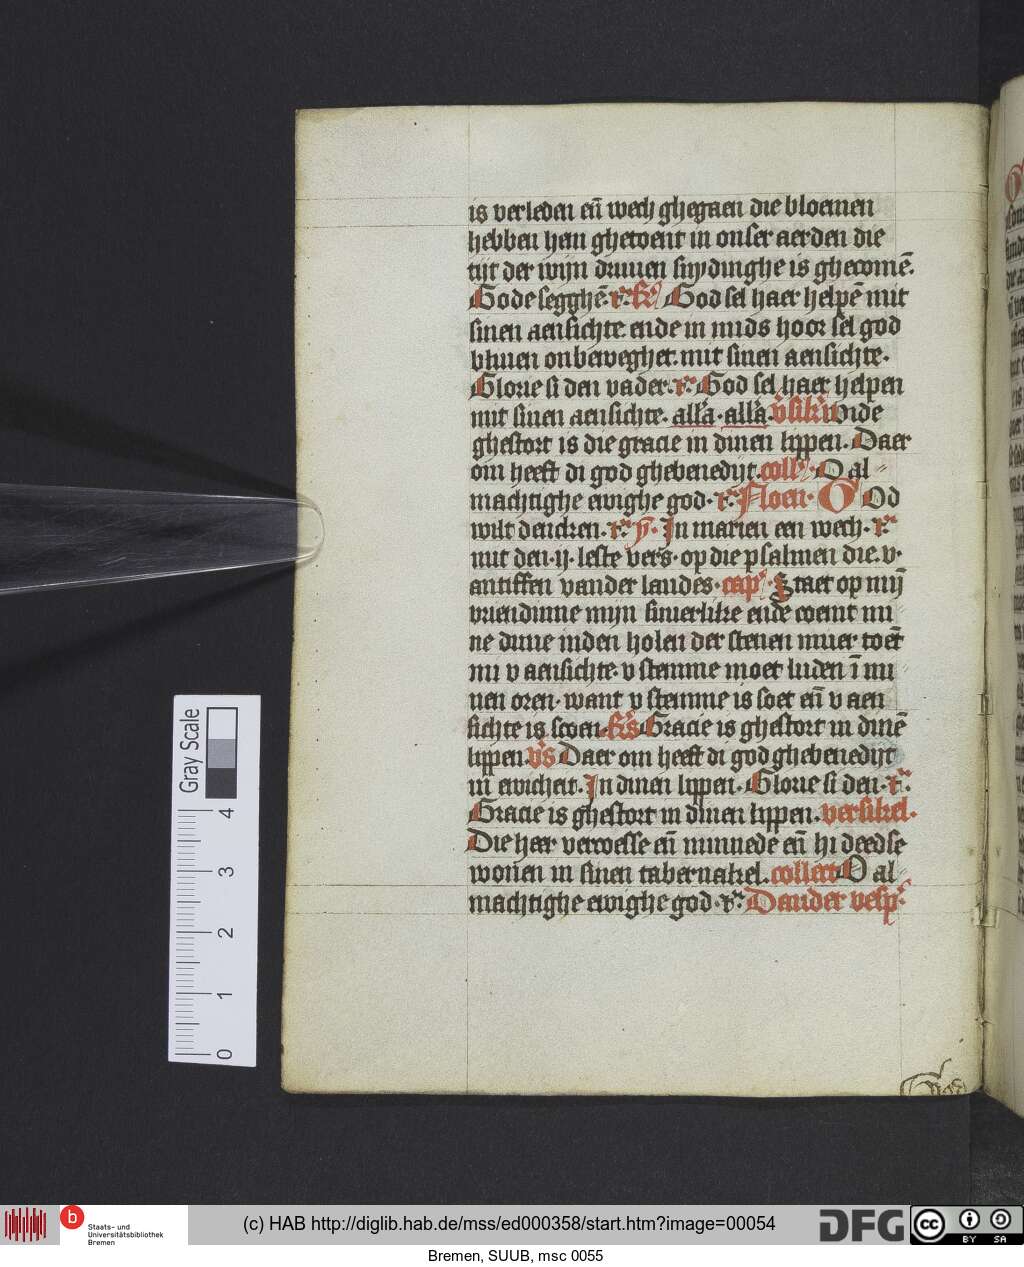 is verleden eñ wech ghegaen die bloemen
hebben hem ghetoent in onser aerden die
tijt der wijn druuen snydinghe is ghecomē.
Gode segghē. r̄. God sel haer helpē mit
sinen aensichte ende in mids hoor sel god
bliuen onbeweghet. mit sinen aensichte.
Glorie si den vader. r̄. God sel haer helpen
mit sinen aensichte. all'a. all'a. v̄sik'l wtde
ghestort is die gracie in dinen lippen. Daer
om heeft di god ghebenedijt. coll'. O al
machtighe ewighe god. r̄. Noen. God
wilt dencken. r̄. ȳ. In marien een wech. r̄.
mit den .ij. leste vers. op die psalmen die .v.
antiffen vander laudes. cap'. Staet op mij
vriendinne mijn suuerlike ende coemt mi
ne duue inden holen der stenen muer toēt
mi v aensichte. v stemme moet luden ī mi
nen oren. want v stemme is soet eñ v aen
sichte is scoen. R's Gracie is ghestort in dinē
lippen. v's Daer om heeft di god ghebenedijt
in ewicheit. In dinen lippen. Glorie si den. r̄.
Gracie is ghestort in dinen lippen. versikel.
Die heer vercoesse eñ minnede eñ hi deedse
wonen in sinen tabernakel. collect O al
machtighe ewighe god. r̄. Dander vesp.
Gray Scale
4
3
2
1
0
b
Staats- und
Universitätsbibliothek
Bremen
(c) HAB http://diglib.hab.de/mss/ed000358/start.htm?image=00054
DFG
cc
BY SA
Bremen, SUUB, msc 0055